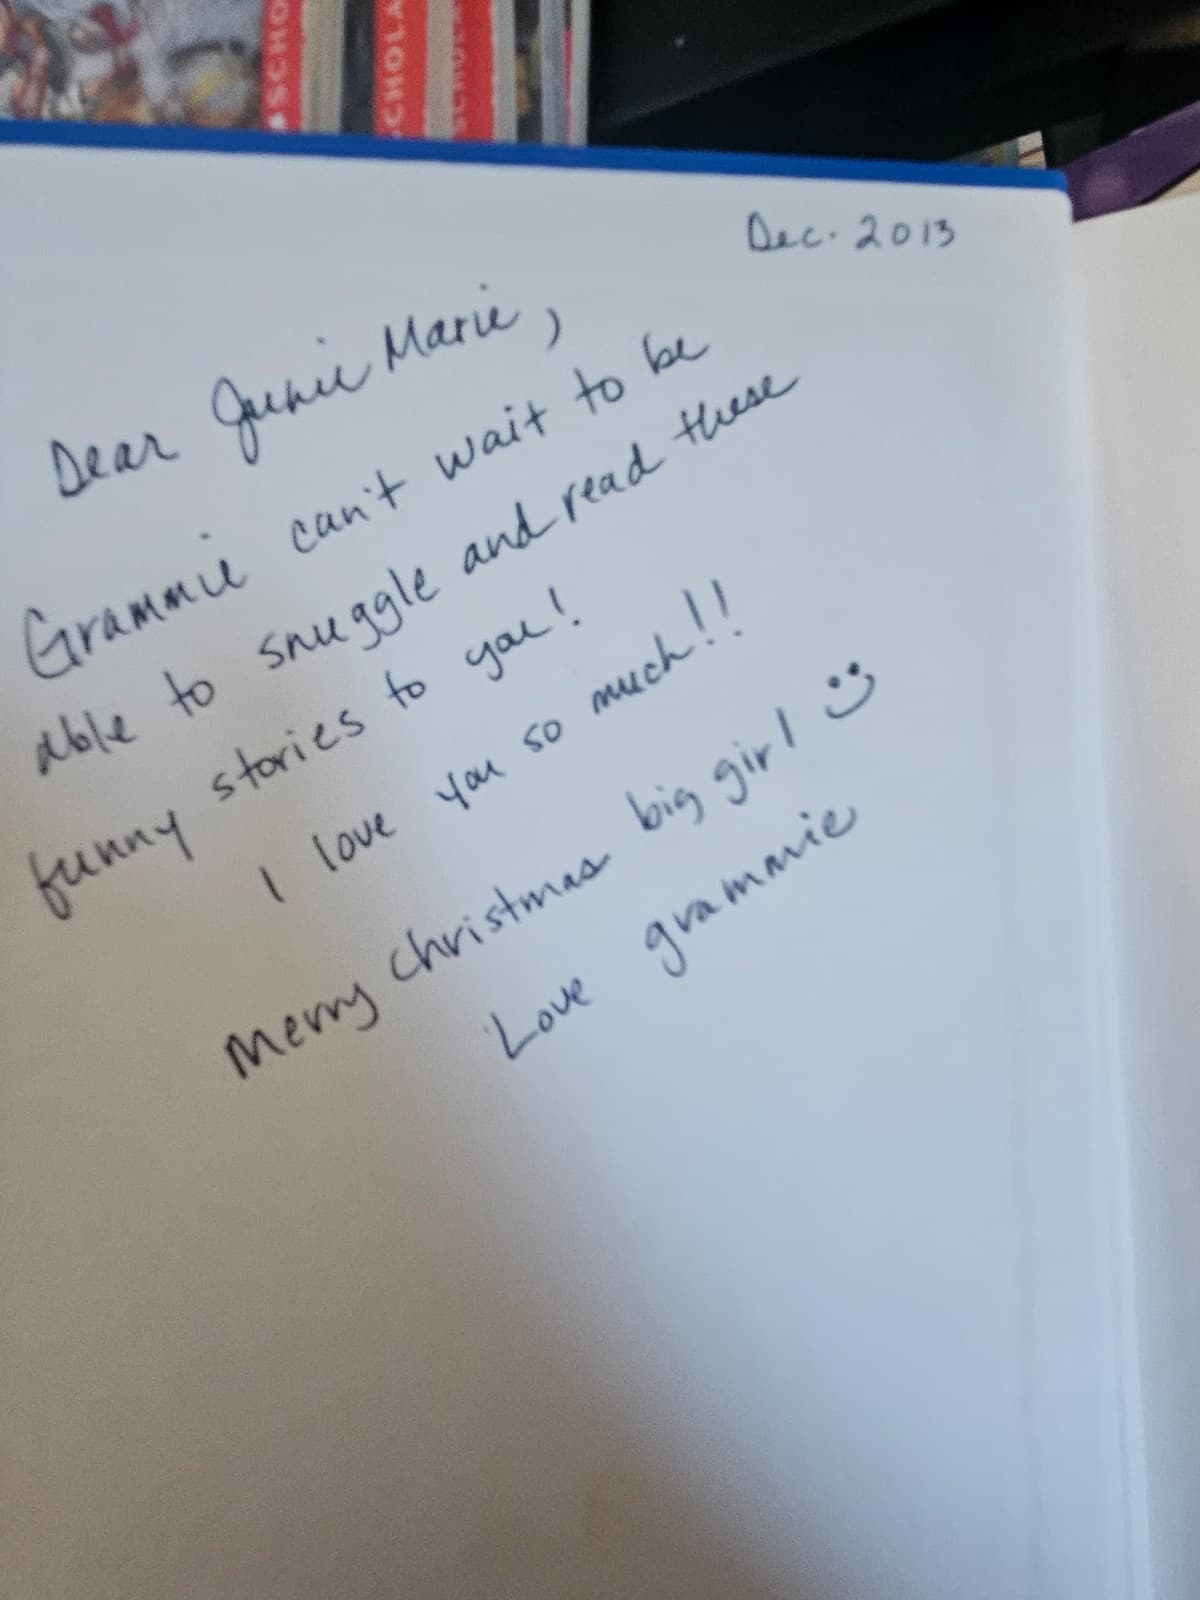 SCHO
SCHOLA
SCHOLA
Dec. 2013
Dear Junie Marie,
Grammie can't wait to be
able to snuggle and read these
funny stories to you!
I love you so much!!
Merry Christmas big girl :)
Love grammie